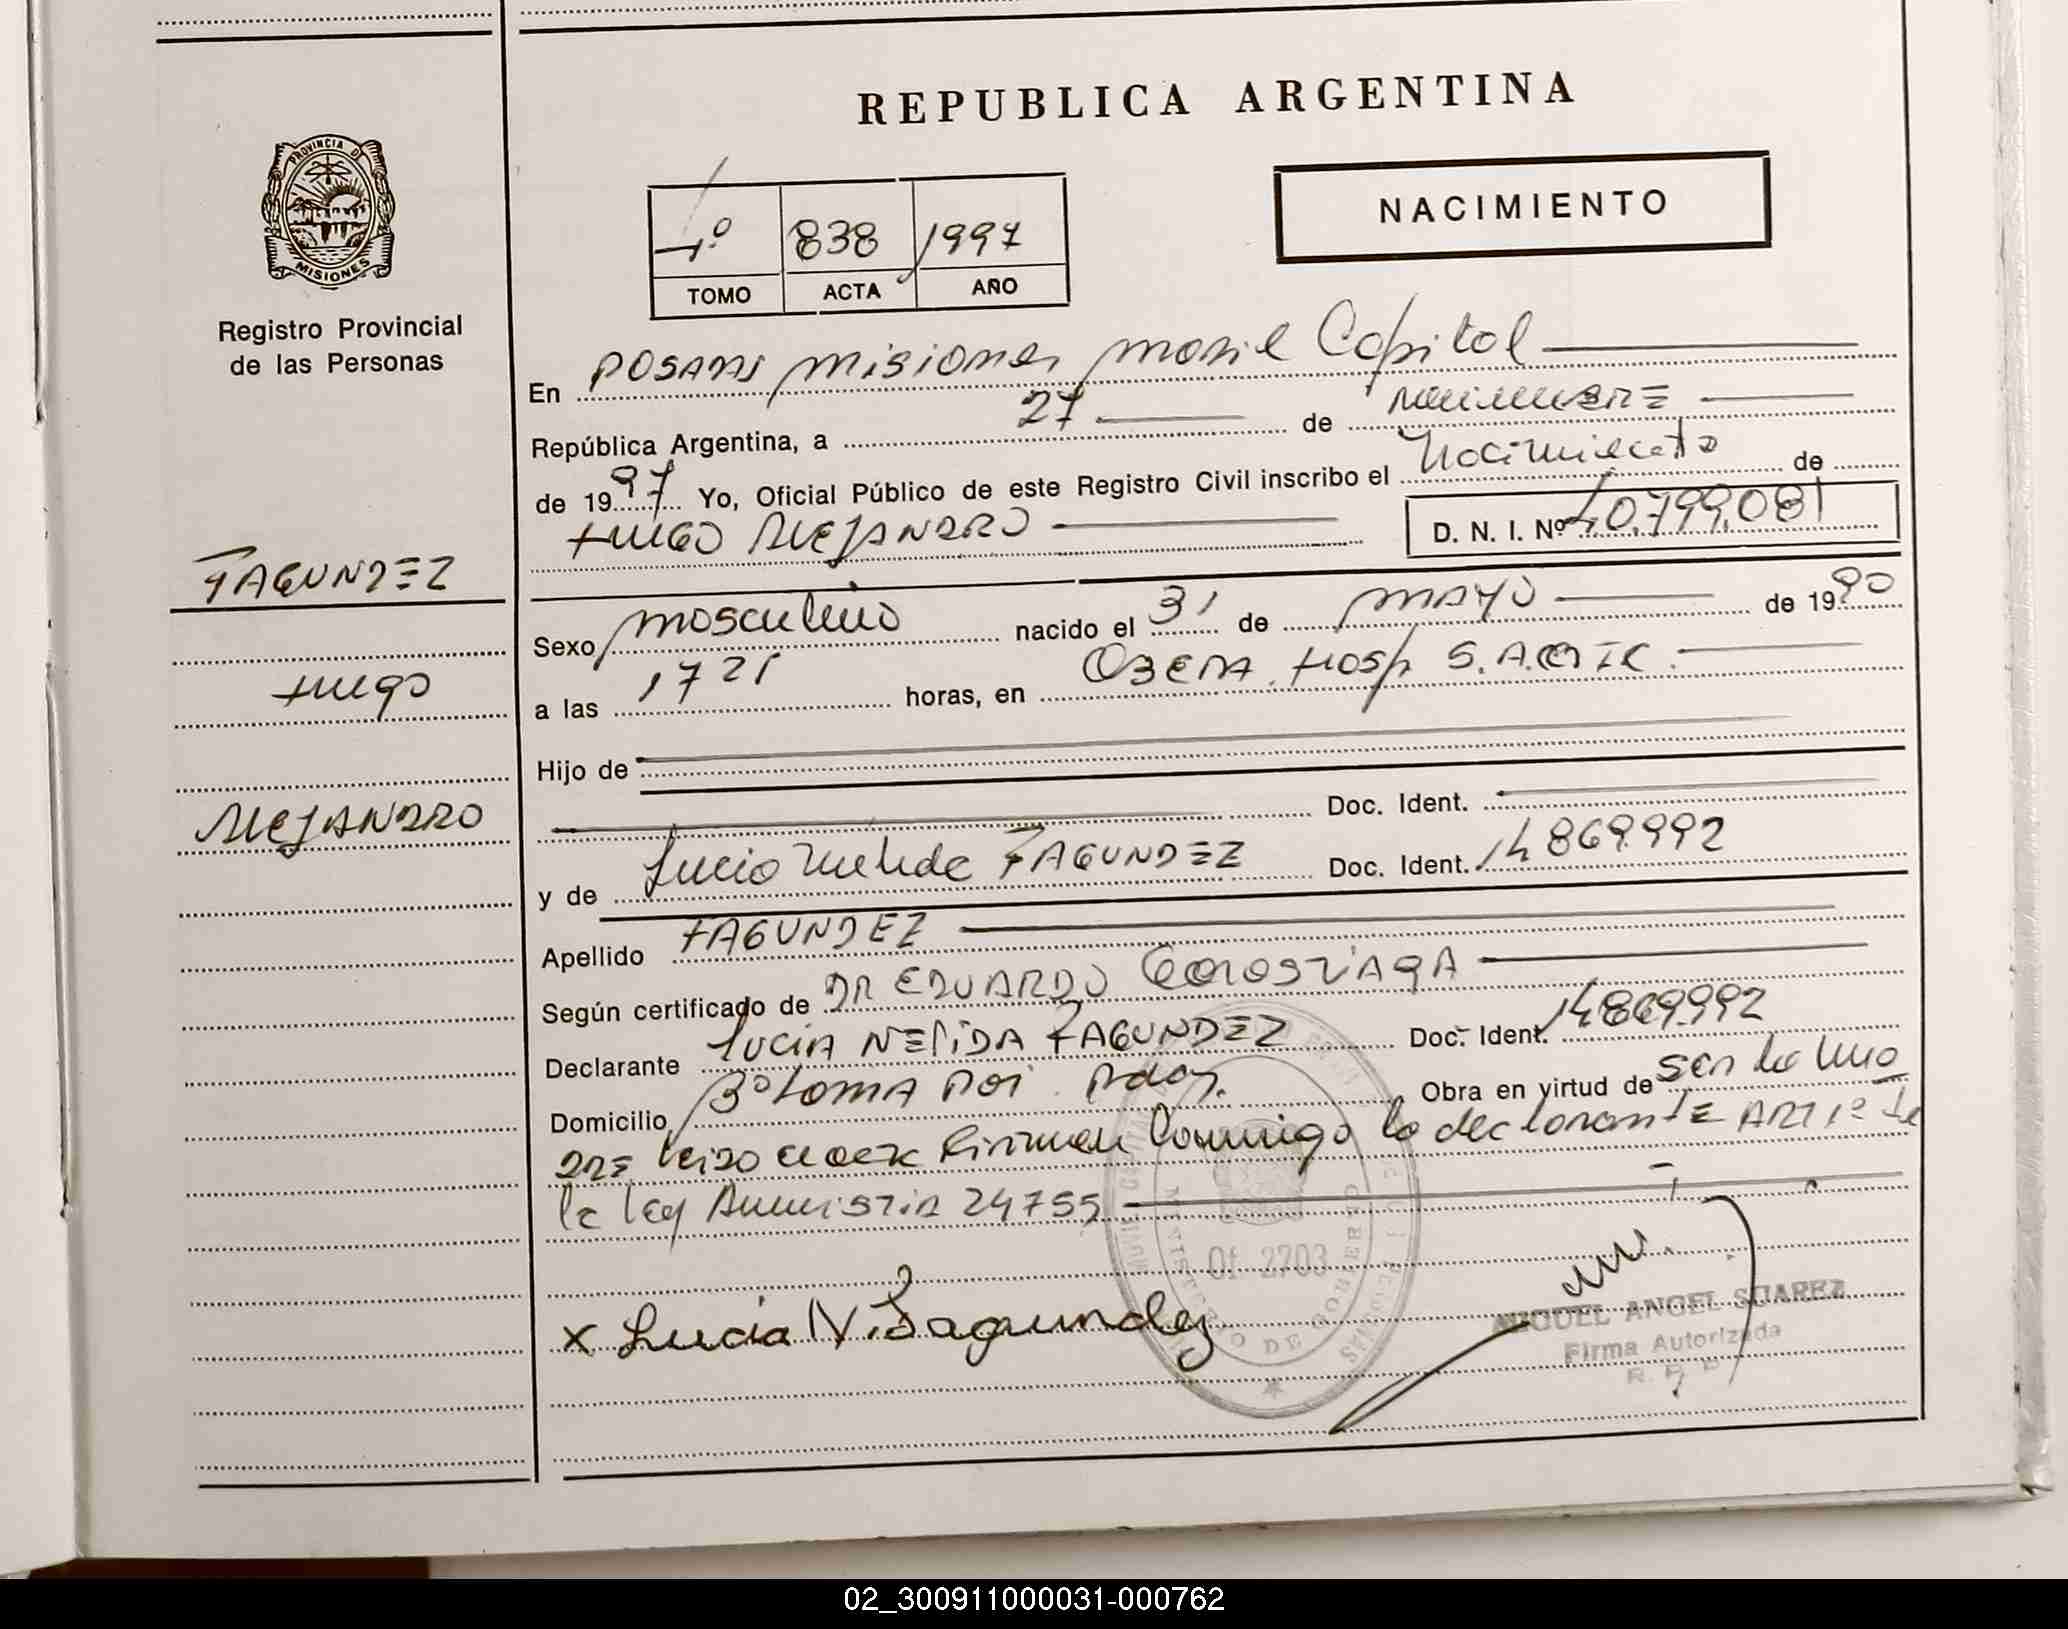 REPUBLICA ARGENTINA
PROVINCIA DE
MISIONES
Registro Provincial
de las Personas
1º 838 1997
TOMO ACTA AÑO
NACIMIENTO
En POSADAS misiones Capital
República Argentina, a 27 de
de 1997 Yo, Oficial Público de este Registro Civil inscribo el Nacimiento de
HUGO ALEJANDRO D. N. I. Nº 40.799.081
FAGUNDEZ
Sexo masculino nacido el 31 de MAYO de 1990
Hugo
a las 1721 horas, en OBERA. Hosp S.A.M.I.C.
Hijo de
Doc. Ident.
ALEJANDRO
y de Lucia Nelida FAGUNDEZ Doc. Ident. 14869.992
Apellido FAGUNDEZ
Según certificado de DR EDUARDO GOROSTIAGA
Declarante LUCIA NELIDA FAGUNDEZ Doc. Ident. 14869.992
Domicilio Obra en virtud de ser la
DRE firman Conmigo la declarante ART 1º de
la ley Amnistia 24755
Of. 2703
MINISTERIO DE GOBIERNO
x Lucia N. Fagundez
MIGUEL ANGEL SUAREZ
Firma Autorizada
R. P. P.
02_300911000031-000762